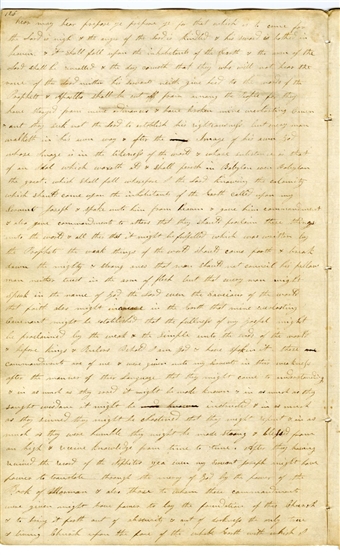 fear ye hear prepare ye prepare ye for that which is to come for
the Lord is nigh & the anger of the Lord is kindled & his sword is bathed in
heaven & it shall fall upon the inhabitants of the Earth & the arm of the
Lord shall be revealed & the day cometh that they who will not hear the
voice of the Lord neither his servants neither give heed to the words of the
Prophets & Apostles shall be cut off from among the People for they
have strayed from mine ordinances & have broken mine everlasting Coven
ant they seek not the Lord to establish his righteousness but every man
walketh in his own way & after the image of his own God
whose image is in the likeness of the world & whose substance is that
of an Idol which waxeth old & shall perish in Babylon even Babylon
the great which shall fall wherefore I the Lord knowing the calamity
which should come upon the inhabitants of the Earth called upon my
servant Joseph & spake unto him from heaven & gave him commandments
& also gave commandments to others that they should proclaim these things
unto the world & all this that it might be fulfilled which was written by
the Prophets the weak things of the world should come forth & break
down the mighty & strong ones that man should not counsel his fellow
man neither trust in the arm of flesh but that every man might
speak in the name of God the Lord even the saviour of the world
that faith also might increase in the Earth that mine everlasting
covenant might be established that the fullness of my gospel might
be proclaimed by the weak & the simple unto the ends of the world
& before kings & Rulers Behold I am God & have spoken it these
commandments are of me & were given unto my servants in their weakness
after the manner of their Language that they might come to understanding
& in as much as they erred it might be made known & in as much as they
sought wisdom it might be instructed & in as much
as they sinned they might be chastened that they might repent & in as
much as they were humble they might be made strong & blessed from
on high & receive knowledge from time to time & after they having
received the record of the Nephites yea even my servant Joseph might have
power to translate through the mercy of God by the power of God the
Book of Mormon & also those to whom these commandments
were given might have power to lay the foundation of this Church
& to bring it forth out of obscurity & out of darkness the only true
& living Church upon the face of the whole Earth with which I